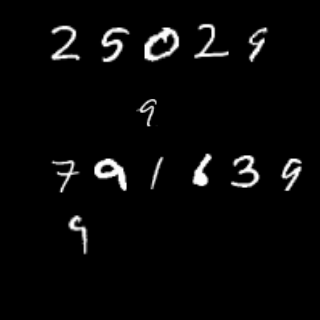 25029
9
791639
9